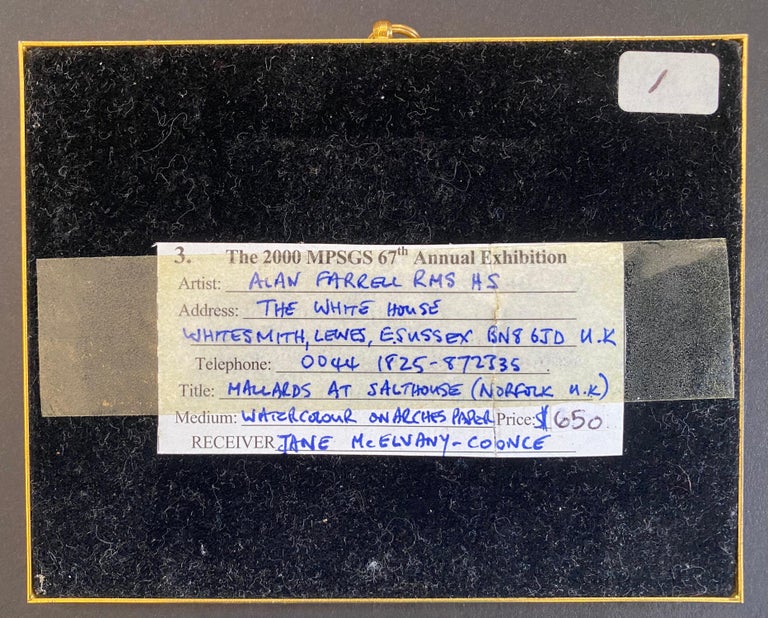 1
3. The 2000 MPSGS 67th Annual Exhibition
Artist: ALAN FARRELL RMS HS
Address: THE WHITE HOUSE
WHITESMITH, LEWES, E.SUSSEX BN8 6JD U.K
Telephone: 0044 1825-872335
Title: MALLARDS AT SALTHOUSE (NORFOLK U.K)
Medium: WATERCOLOUR ON ARCHES PAPER Price: $650
RECEIVER JANE McELVANY-COONCE